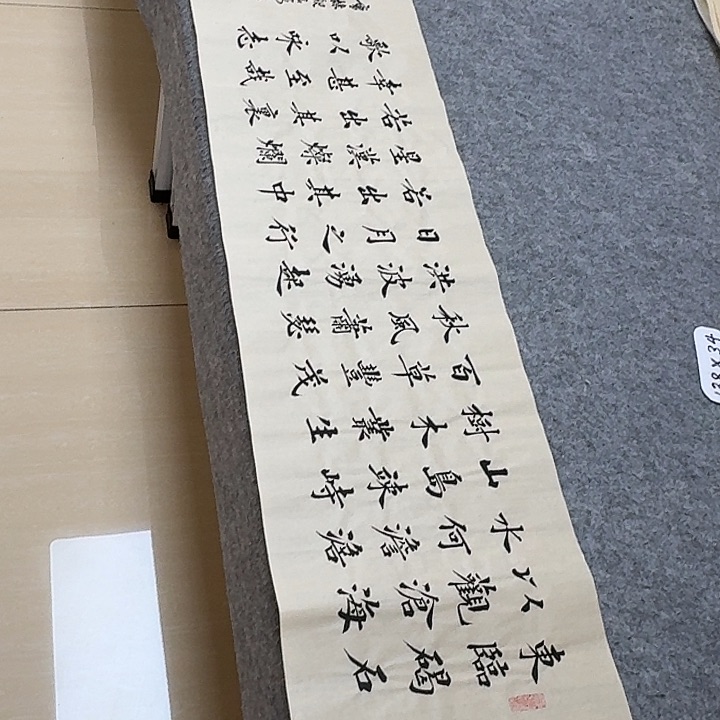 東臨碣石
以觀滄海
水何澹澹
山島竦峙
樹木叢生
百草豐茂
秋風蕭瑟
洪波湧起
日月之行
若出其中
星漢燦爛
若出其裏
幸甚至哉
歌以咏志
128X34